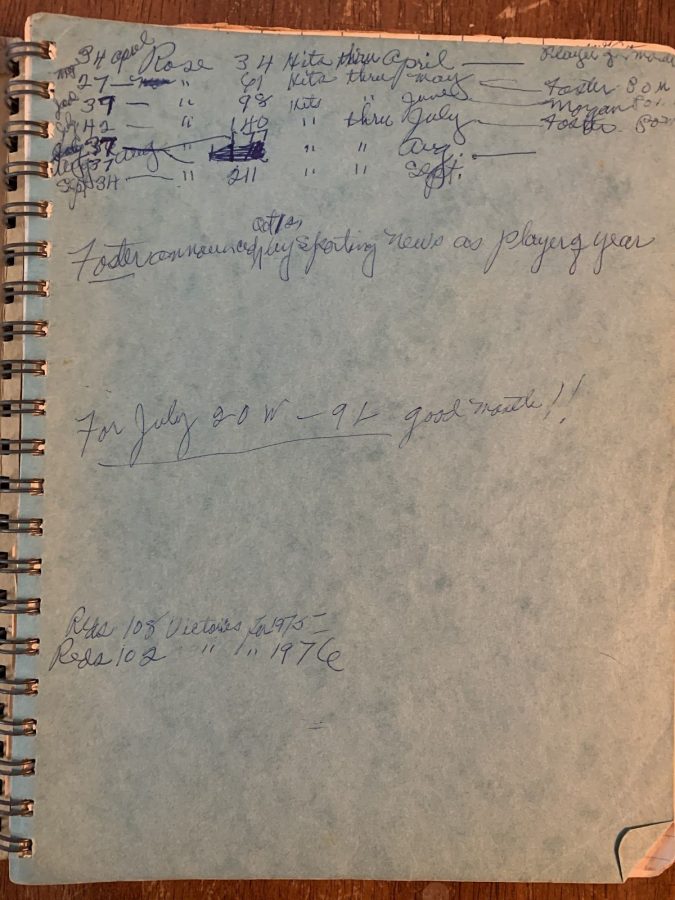 34 April Rose 34 Hits thru April — Player of month
May 27 — " 61 Hits thru May — Foster
June 37 — " 98 Hits " June — Morgan
July 42 — " 140 " thru July — Foster
37 Aug " " " Aug.
Sept 34 — " 211 " " Sept.
Oct
Foster announced by Sporting News as player of year
For July 20 W — 9 L good month!!
Reds 108 Victories for 1975
Reds 102 " " 1976